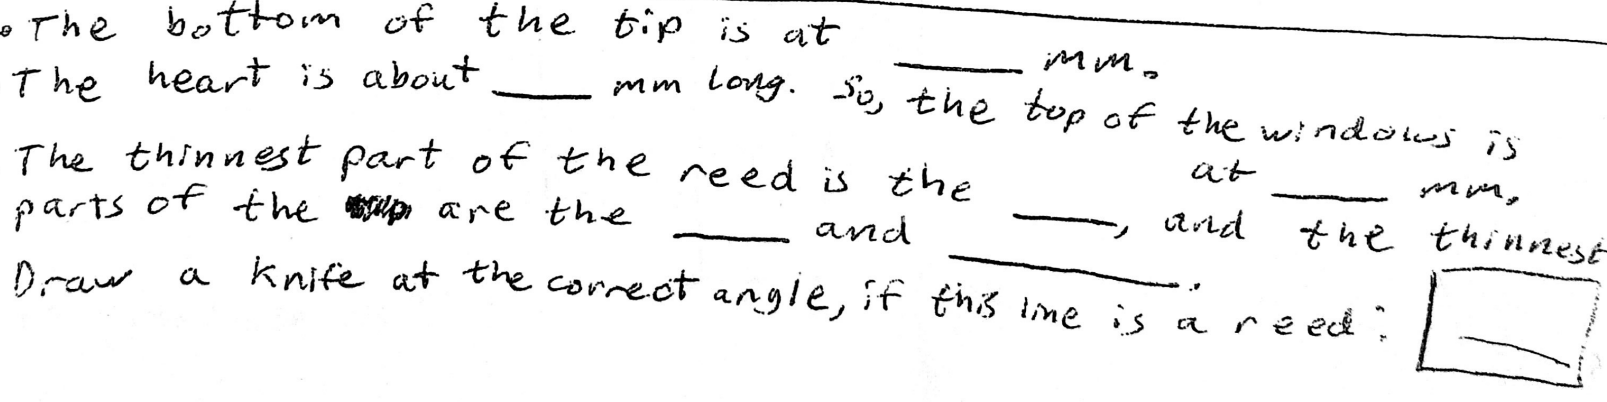 • The bottom of the tip is at ____ mm.
The heart is about ____ mm long. So, the top of the windows is at ____ mm.
The thinnest part of the reed is the ____, and the thinnest
parts of the are the ____ and ____.
Draw a knife at the correct angle, if this line is a reed: